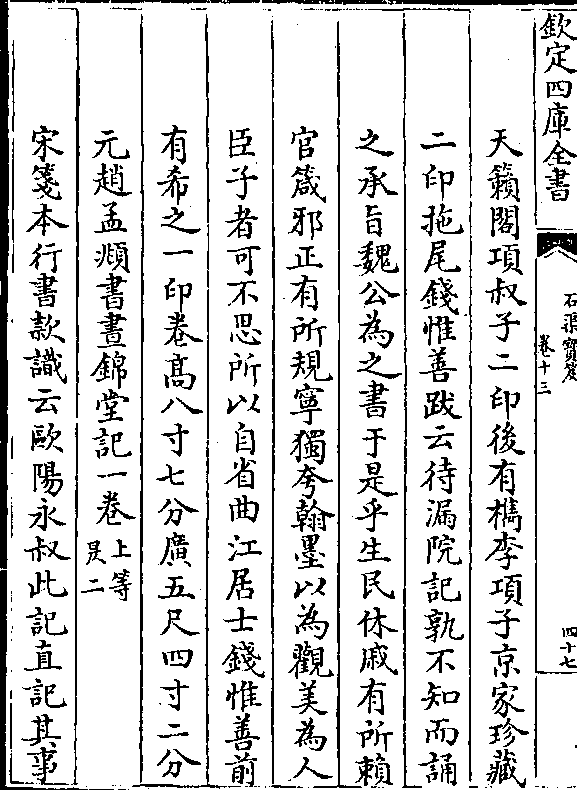 欽定四庫全書
石渠寶笈
卷十三
四十七
天籟閣項叔子二印後有檇李項子京家珍藏
二印拖尾錢惟善跋云待漏院記孰不知而誦
之承旨魏公為之書于是乎生民休戚有所賴
官箴邪正有所規寧獨夸翰墨以為觀美為人
臣子者可不思所以自省曲江居士錢惟善前
有希之一印卷髙八寸七分廣五尺四寸二分
元趙孟頫書晝錦堂記一卷上等昃二
宋箋本行書款識云歐陽永叔此記直記其事